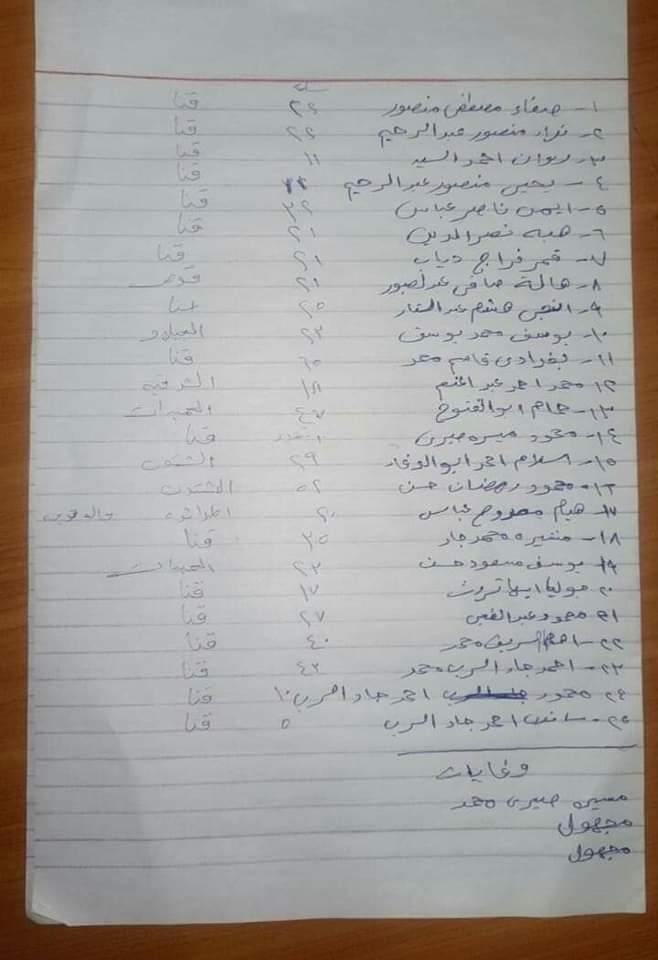 سنه
١- صفاء مصطفى منصور ٢٤ قنا
٢- نورا منصور عبد الرحيم ٢٤ قنا
٣- روان احمد السيد ١١ قنا
٤- يحيى منصور عبد الرحيم قنا
٥- ايمن ناصر عباس ٣٢ قنا
٦- هبه نصر الدين ٢١ قنا
٧- قمر فراج دياب ٢١ قنا
٨- هالة صافى ٢١ قوص
٩- هشام عبد الستار ٢٥ قنا
١٠- يوسف محمد يوسف ٢٣
١١- بغدادى قاسم محمد ٦٥ قنا
١٢- محمد احمد عبد المنعم ١٨ الشرقيه
١٣- ابو الفتوح ٤٧ الحميدات
١٤- محمود صبرى قنا
١٥- اسلام احمد ابو الوفا ٢٩
١٦- محمود رمضان حسن ٥٢
١٧- هيام ممدوح عباس ٢٠
١٨- منيره محمد جاد ٣٥ قنا
١٩- يوسف مسعود حسن ٢٣ الحميدات
٢٠- جوليا ايهاب ثروت ١٧ قنا
٢١- محمود عبد الغنى ٢٧ قنا
٢٢- الشريف محمد ٤٠ قنا
٢٣- احمد جاد الرب محمد ٤٢ قنا
٢٤- محمود احمد جاد الرب ١٠ قنا
٢٥- احمد جاد الرب ٥ قنا
وفايات
صبرى محمد
مجهول
مجهول